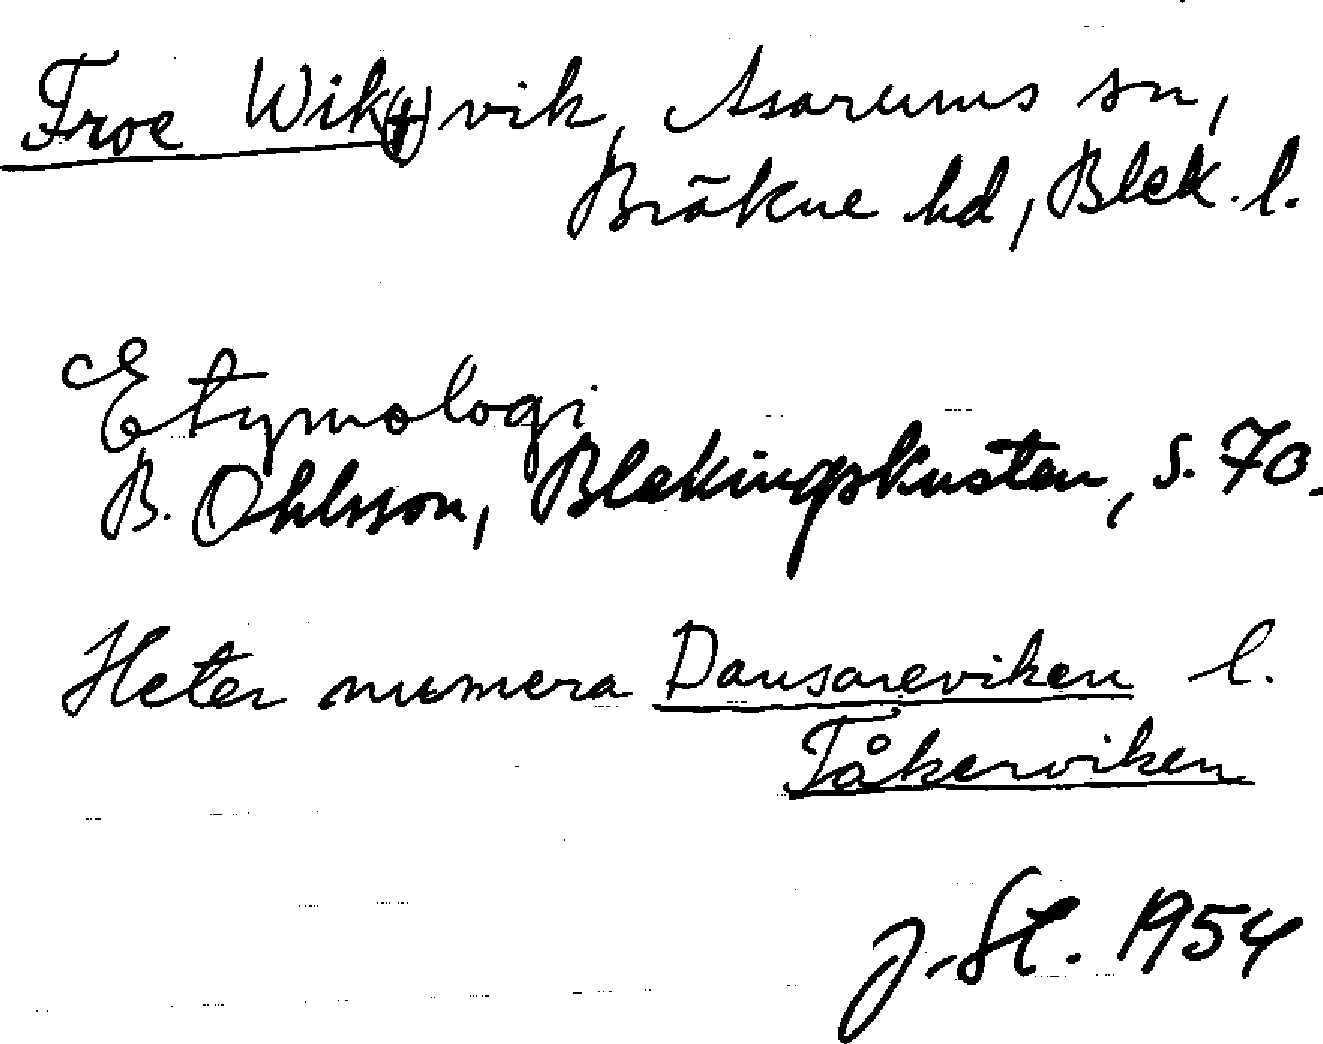 Froe Wik (†) vik, Asarums sn,
Bräkne hd, Blek. l.
Etymologi
B. Ohlsson, Blekingskusten, s. 70.
Heter numera Dansareviken l.
Tåkerviken
J. St. 1954